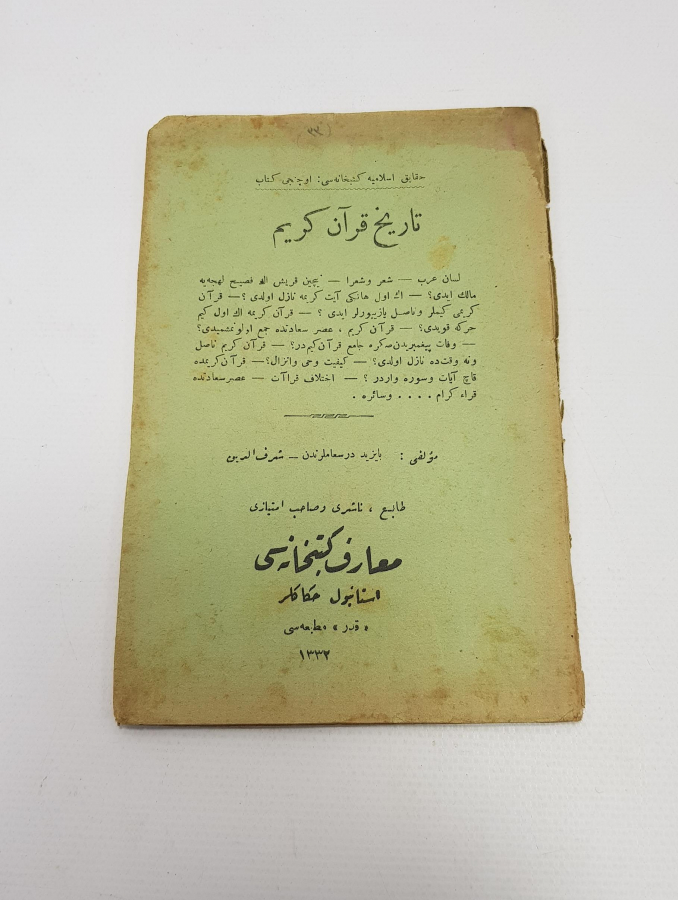 (٣٣
حقایق اسلامیه کتبخانه‌سی: اوچنجی کتاب
تاریخ قرآن کریم
لسان عرب — شعر وشعرا — نیچین قریش اڭ فصیح لهجه‌یه
مالك ایدی؟ — اڭ اول هانکی آیت کریمه نازل اولدی؟ — قرآن
کریمی کیملر وناصل یازییورلر ایدی؟ — قرآن کریمه اڭ اول کیم
حرکه قویدی؟ — قرآن کریم، عصر سعادتده جمع اولونمشمیدی؟
— وفات پیغمبریدن صکره جامع قرآن کیم‌در؟ — قرآن کریم ناصل
ونه وقت‌ده نازل اولدی؟ — کیفیت وحی وانزال؟ — قرآن کریمده
قاچ آیات وسوره واردر؟ — اختلاف قراآت — عصر سعادتده
قراء کرام . . . . وسائره .
مؤلفی: بایزید درسعاملرندن — شرف‌الدین
طابع، ناشری وصاحب امتیازی
معارف کتبخانه‌سی
استانبول حکاکلر
«قدر» مطبعه‌سی
١٣٣٢